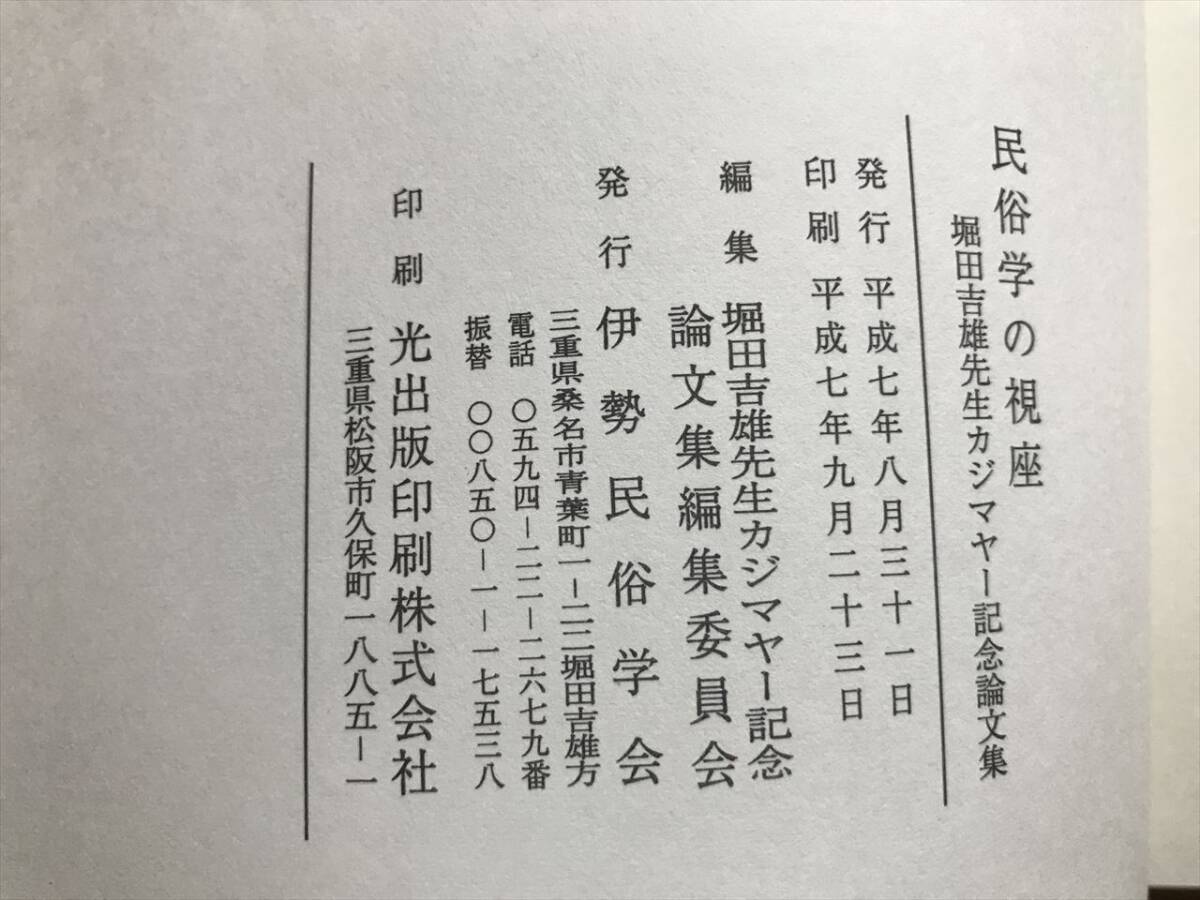 民俗学の視座
堀田吉雄先生カジマヤー記念論文集
発行 平成七年八月三十一日
印刷 平成七年九月二十三日
編集 堀田吉雄先生カジマヤー記念
論文集編集委員会
発行 伊勢民俗学会
三重県桑名市青葉町一-二二堀田吉雄方
電話 〇五九四-二二-二六七九番
振替 〇〇八五〇-一-一七五三八
印刷 光出版印刷株式会社
三重県松阪市久保町一八八五-一